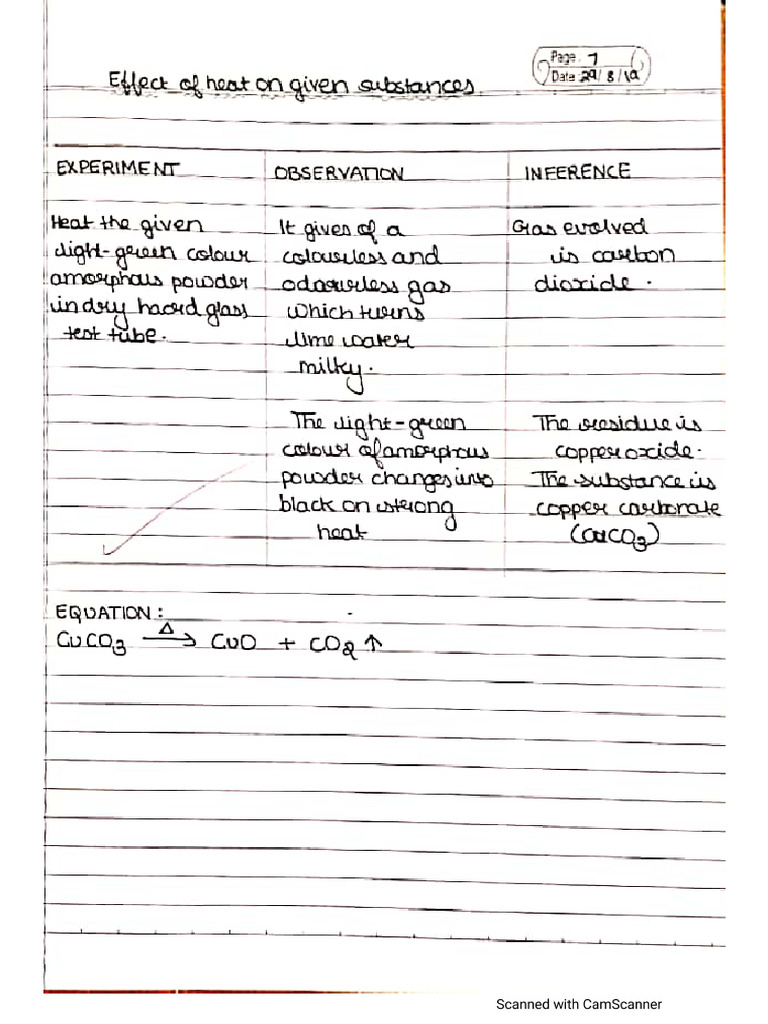 Page: 7
Date: 29/8/19
Effect of heat on given substances
EXPERIMENT OBSERVATION INFERENCE
Heat the given
light-green colour
amorphous powder
in dry hard glass
test tube.
It gives of a
colourless and
odourless gas
which turns
lime water
milky.
Gas evolved
is carbon
dioxide.
The light-green
colour of amorphous
powder changes into
black on strong
heat
The residue is
copper oxide.
The substance is
copper carbonate
(CuCO3)
EQUATION:
CuCO3 Δ→ CuO + CO2 ↑
Scanned with CamScanner